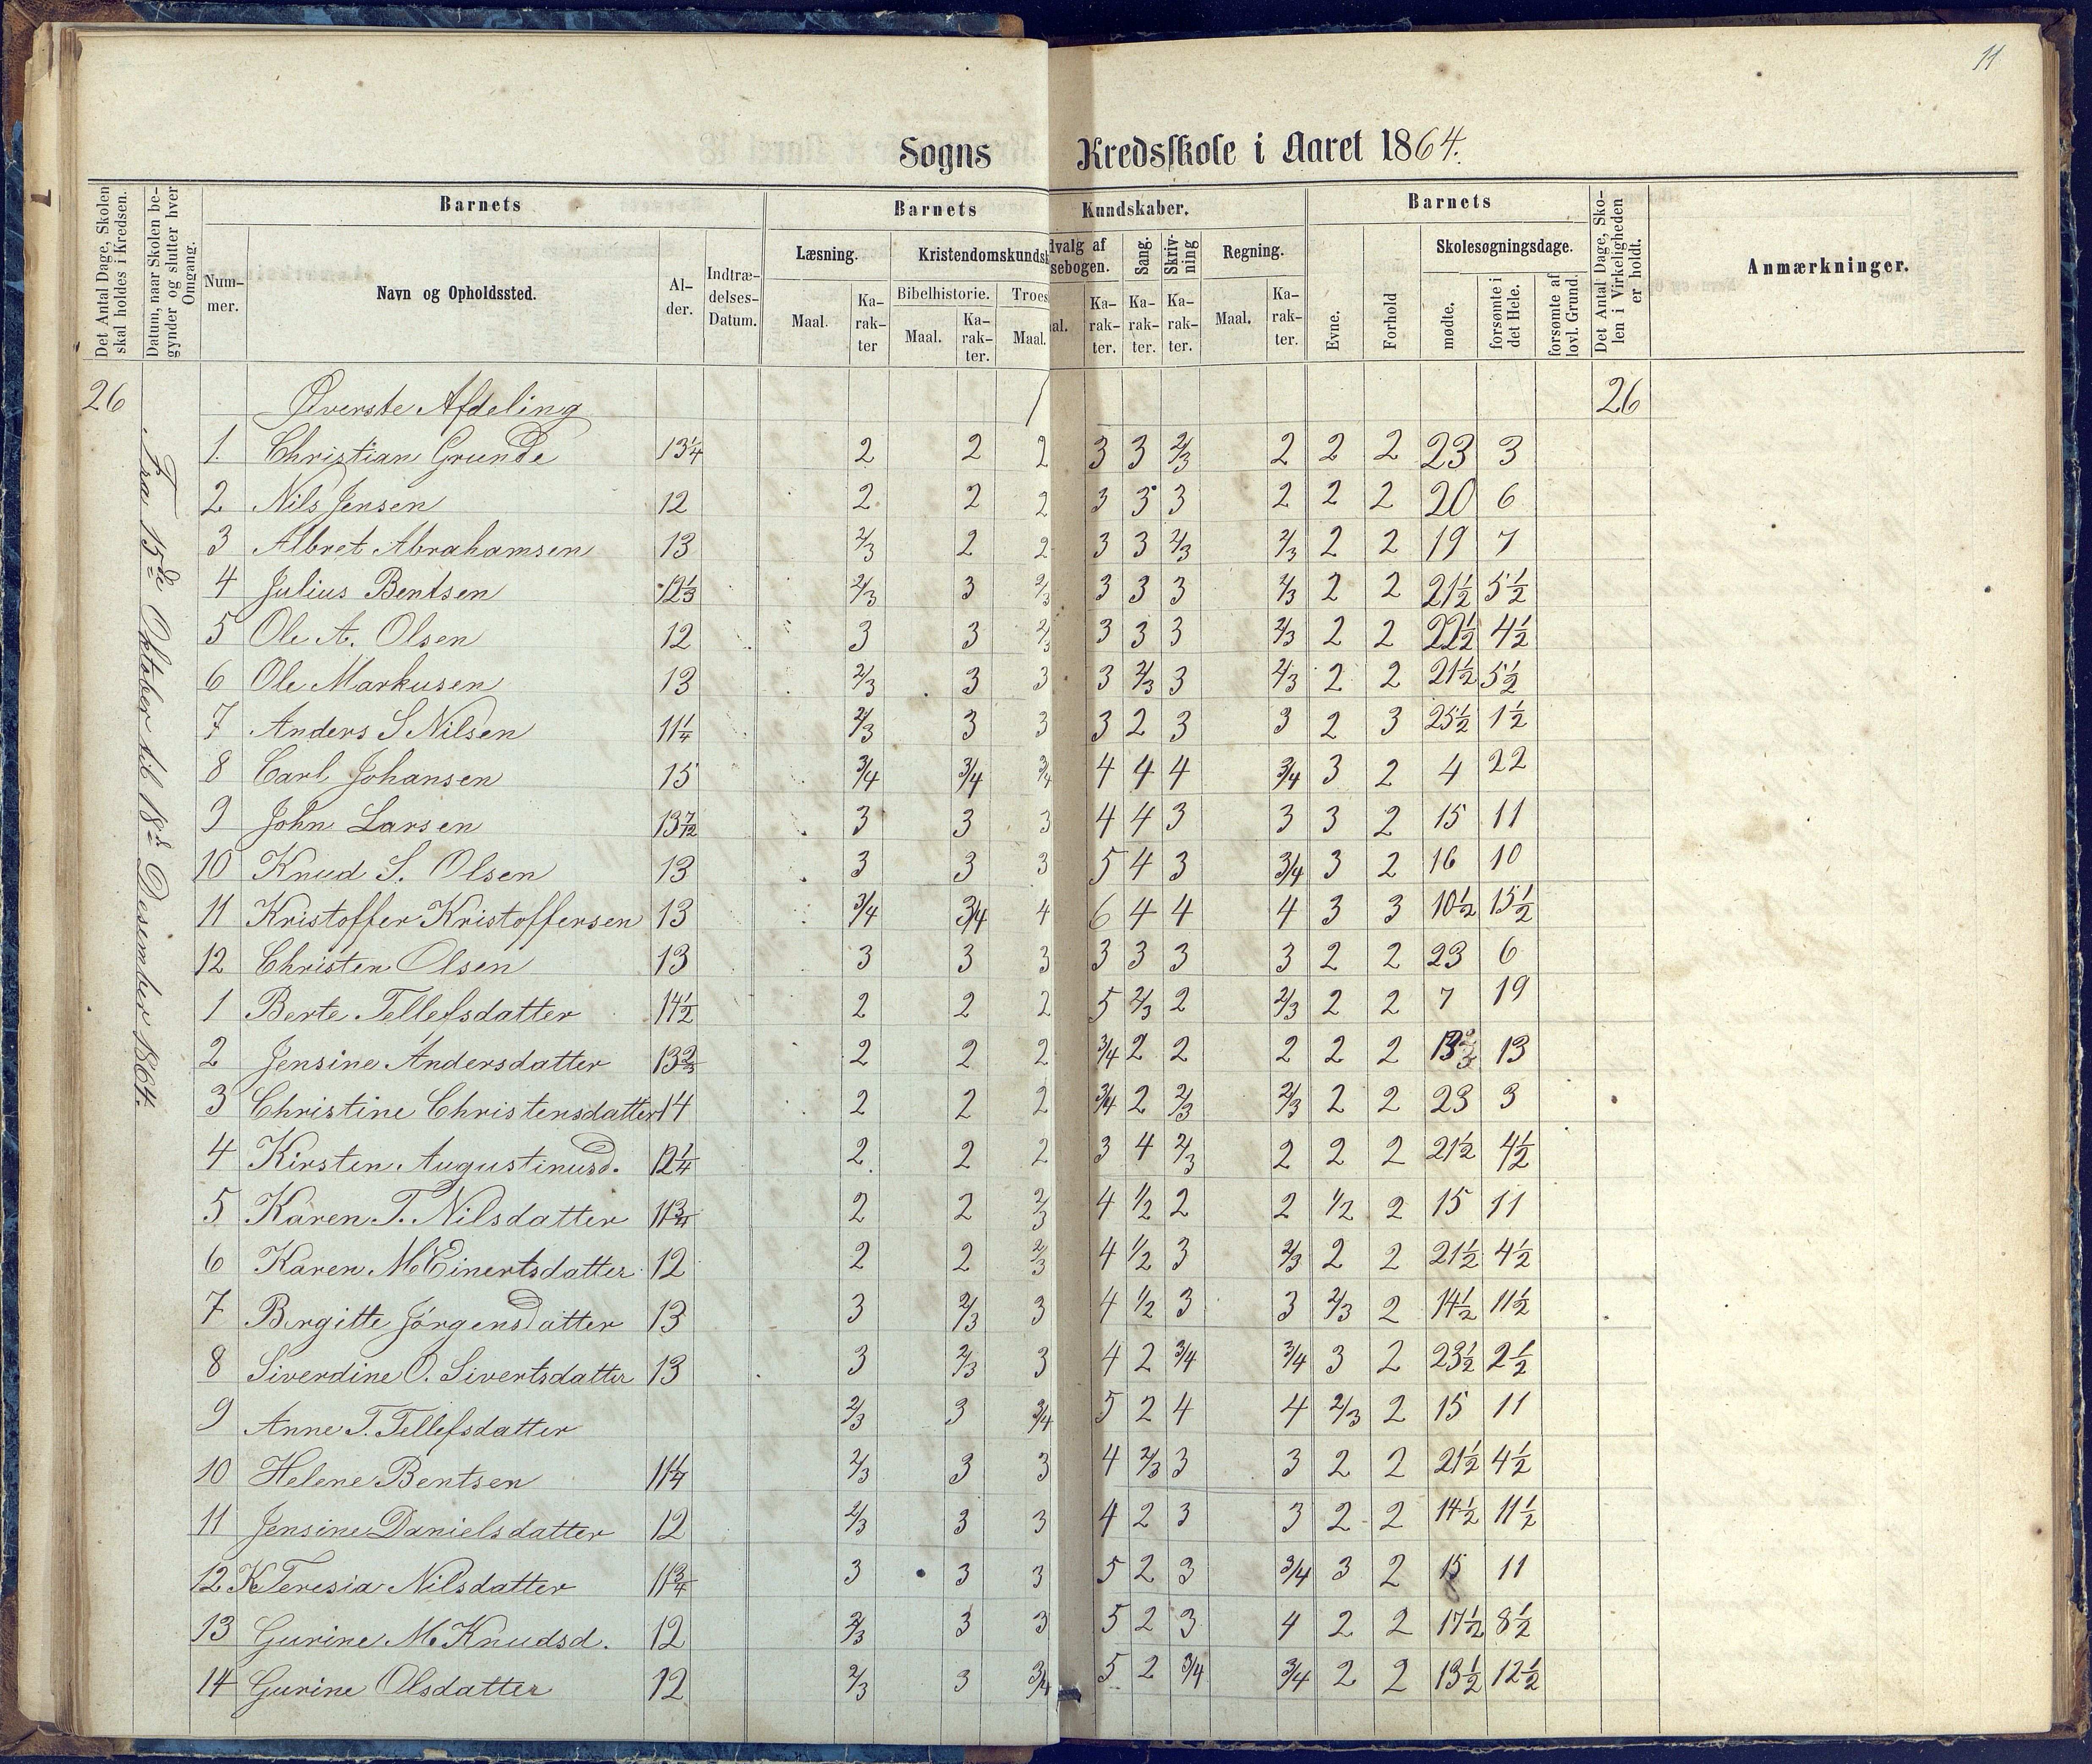 11
Sogns Kredsskole i Aaret 1864.
Det Antal Dage, Skolen skal holdes i Kredsen.
Datum, naar Skolen begynder og slutter hver Omgang.
Barnets
Nummer.
Navn og Opholdssted.
Alder.
Indtrædelses-Datum.
Barnets Kundskaber.
Læsning.
Maal.
Karakter
Kristendomskundsk
Bibelhistorie.
Maal.
Karakter.
Troes
Maal.
dvalg af
sebogen.
al.
Karakter.
Sang.
Karakter.
Skrivning
Karakter.
Regning.
Maal.
Karakter.
Barnets
Evne.
Forhold
Skolesøgningsdage.
mødte.
forsømte i det Hele.
forsømte af lovl. Grund.
Det Antal Dage, Skolen i Virkeligheden er holdt.
Anmærkninger.
26 Øverste Afdeling 26
Fra 15de Oktober til 18de Desember 1864.
1. Christian Grunde 13¼ 2 2 2 3 3 2/3 2 2 2 23 3
2 Nils Jensen 12 2 2 2 3 3 3 2 2 2 20 6
3 Albret Abrahamsen 13 2/3 2 2 3 3 2/3 2/3 2 2 19 7
4 Julius Bentsen 12⅓ 2/3 3 2/3 3 3 3 2/3 2 2 21½ 5½
5 Ole A. Olsen 12 3 3 2/3 3 3 3 2/3 2 2 22½ 4½
6 Ole Markusen 13 2/3 3 3 3 2/3 3 2/3 2 2 21½ 5½
7 Anders S Nilsen 11¼ 2/3 3 3 3 2 3 3 2 3 25½ 1½
8 Carl Johansen 15 3/4 3/4 3/4 4 4 4 3/4 3 2 4 22
9 John Larsen 13 7/12 3 3 3 4 4 3 3 3 2 15 11
10 Knud S. Olsen 13 3 3 3 5 4 3 3/4 3 2 16 10
11 Kristoffer Kristoffersen 13 3/4 3/4 4 6 4 4 4 3 3 10½ 15½
12 Christen Olsen 13 3 3 3 3 3 3 3 2 2 23 6
1 Berte Tellefsdatter 14½ 2 2 2 5 2/3 2 2/3 2 2 7 19
2 Jensine Andersdatter 13⅔ 2 2 2 3/4 2 2 2 2 2 13
3 Christine Christensdatter 14 2 2 2 3/4 2 2/3 2/3 2 2 23 3
4 Kirsten Augustinusd. 12¼ 2 2 2 3 4 2/3 2 2 2 21½ 4½
5 Karen T. Nilsdatter 11¾ 2 2 2/3 4 1/2 2 2 1/2 2 15 11
6 Karen M Einertsdatter 12 2 2 2/3 4 1/2 3 2/3 2 2 21½ 4½
7 Birgitte Jörgensdatter 13 3 2/3 3 4 1/2 3 3 2/3 2 14½ 11½
8 Siverdine O. Sivertsdatter 13 3 2/3 3 4 2 3/4 3/4 3 2 23½ 2½
9 Anne T. Tellefsdatter 2/3 3 3/4 5 2 4 4 2/3 2 15 11
10 Helene Bentsen 11¼ 2/3 3 3 4 2/3 3 3 2 2 21½ 4½
11 Jensine Danielsdatter 12 2/3 3 3 4 2 3 3 2 2 14½ 11½
12 K Teresia Nilsdatter 11¾ 3 3 3 5 2 3 3/4 3 2 15 11
13 Gurine M. Knudsd. 12 2/3 3 3 5 2 3 4 2 2 17½ 8½
14 Gurine Olsdatter 12 2/3 3 3/4 5 2 3/4 3/4 2 2 13½ 12½